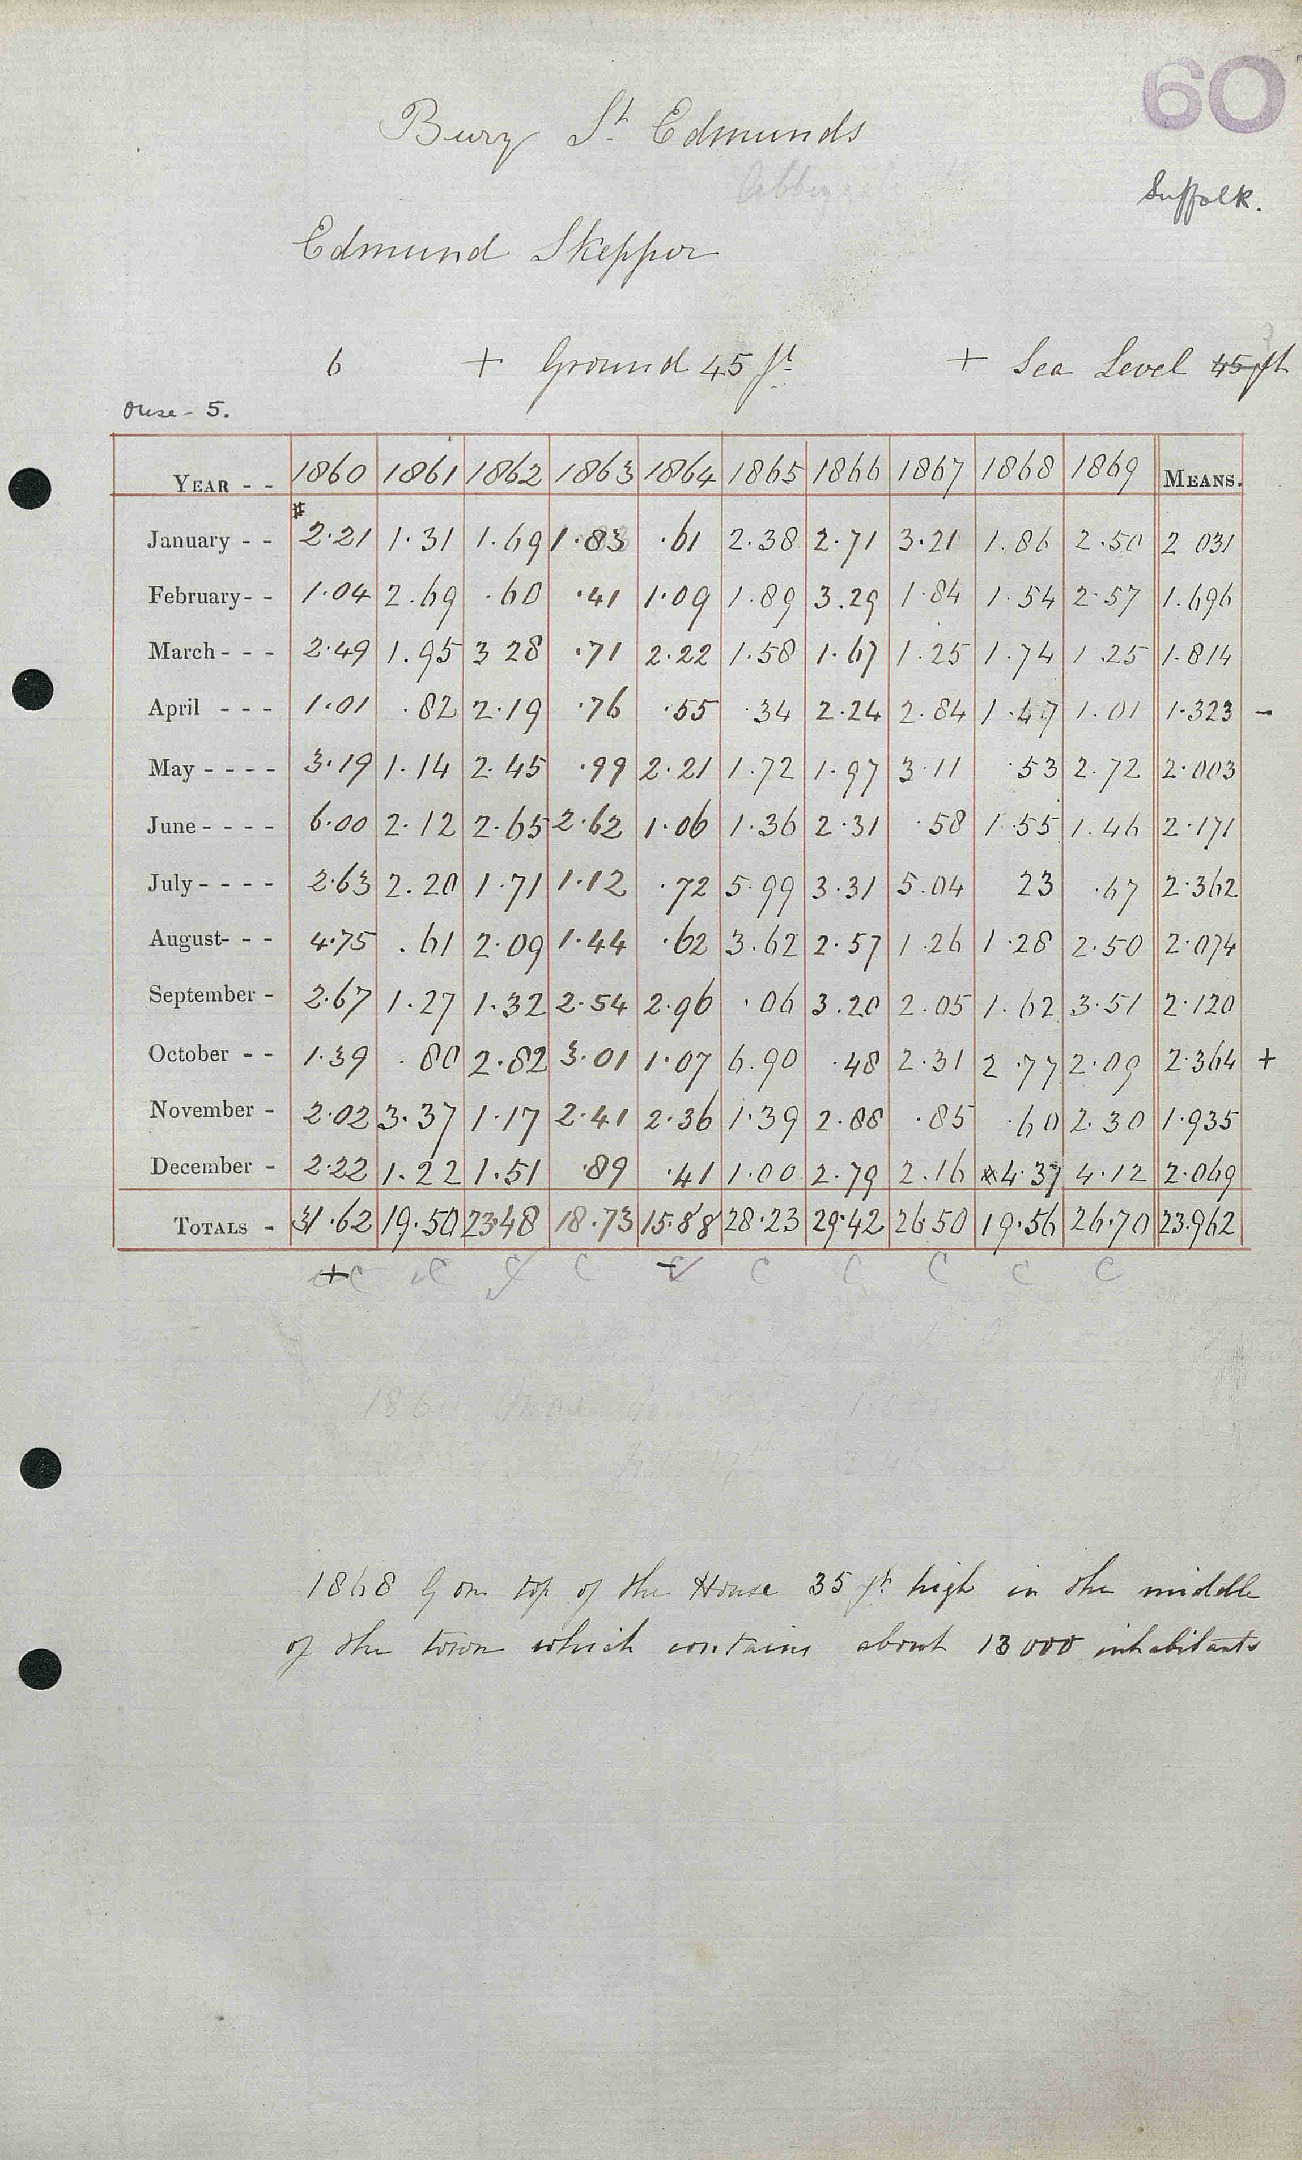 60
Bury St. Edmunds
Suffolk.
Edmund Skepper
6 + Ground 45 ft. + Sea Level 45 ft
Ouse - 5.
YEAR - - 1860 1861 1862 1863 1864 1865 1866 1867 1868 1869 MEANS.
January - - 2.21 1.31 1.69 1.83 .61 2.38 2.71 3.21 1.86 2.50 2 031
February - - 1.04 2.69 .60 .41 1.09 1.89 3.29 1.84 1.54 2.57 1.696
March - - - 2.49 1.95 3 28 .71 2.22 1.58 1.67 1.25 1.74 1.25 1.814
April - - - 1.01 .82 2.19 .76 .55 .34 2.24 2.84 1.47 1.01 1.323 -
May - - - - 3.19 1.14 2.45 .99 2.21 1.72 1.97 3.11 .53 2.72 2.003
June - - - - 6.00 2.12 2.65 2.62 1.06 1.36 2.31 .58 1.55 1.46 2.171
July - - - - 2.63 2.20 1.71 1.12 .72 5.99 3.31 5.04 23 .67 2.362
August - - - 4.75 .61 2.09 1.44 .62 3.62 2.57 1.26 1.28 2.50 2.074
September - 2.67 1.27 1.32 2.54 2.96 .06 3.20 2.05 1.62 3.51 2.120
October - - 1.39 .80 2.82 3.01 1.07 6.90 .48 2.31 2.77 2.09 2.364 +
November - 2.02 3.37 1.17 2.41 2.36 1.39 2.88 .85 .60 2.30 1.935
December - 2.22 1.22 1.51 .89 .41 1.00 2.79 2.16 4.37 4.12 2.069
TOTALS - 31.62 19.50 23.48 18.73 15.88 28.23 29.42 26.50 19.56 26.70 23.962
1868 G on top of the House 35 ft high in the middle
of the town which contains about 13000 inhabitants